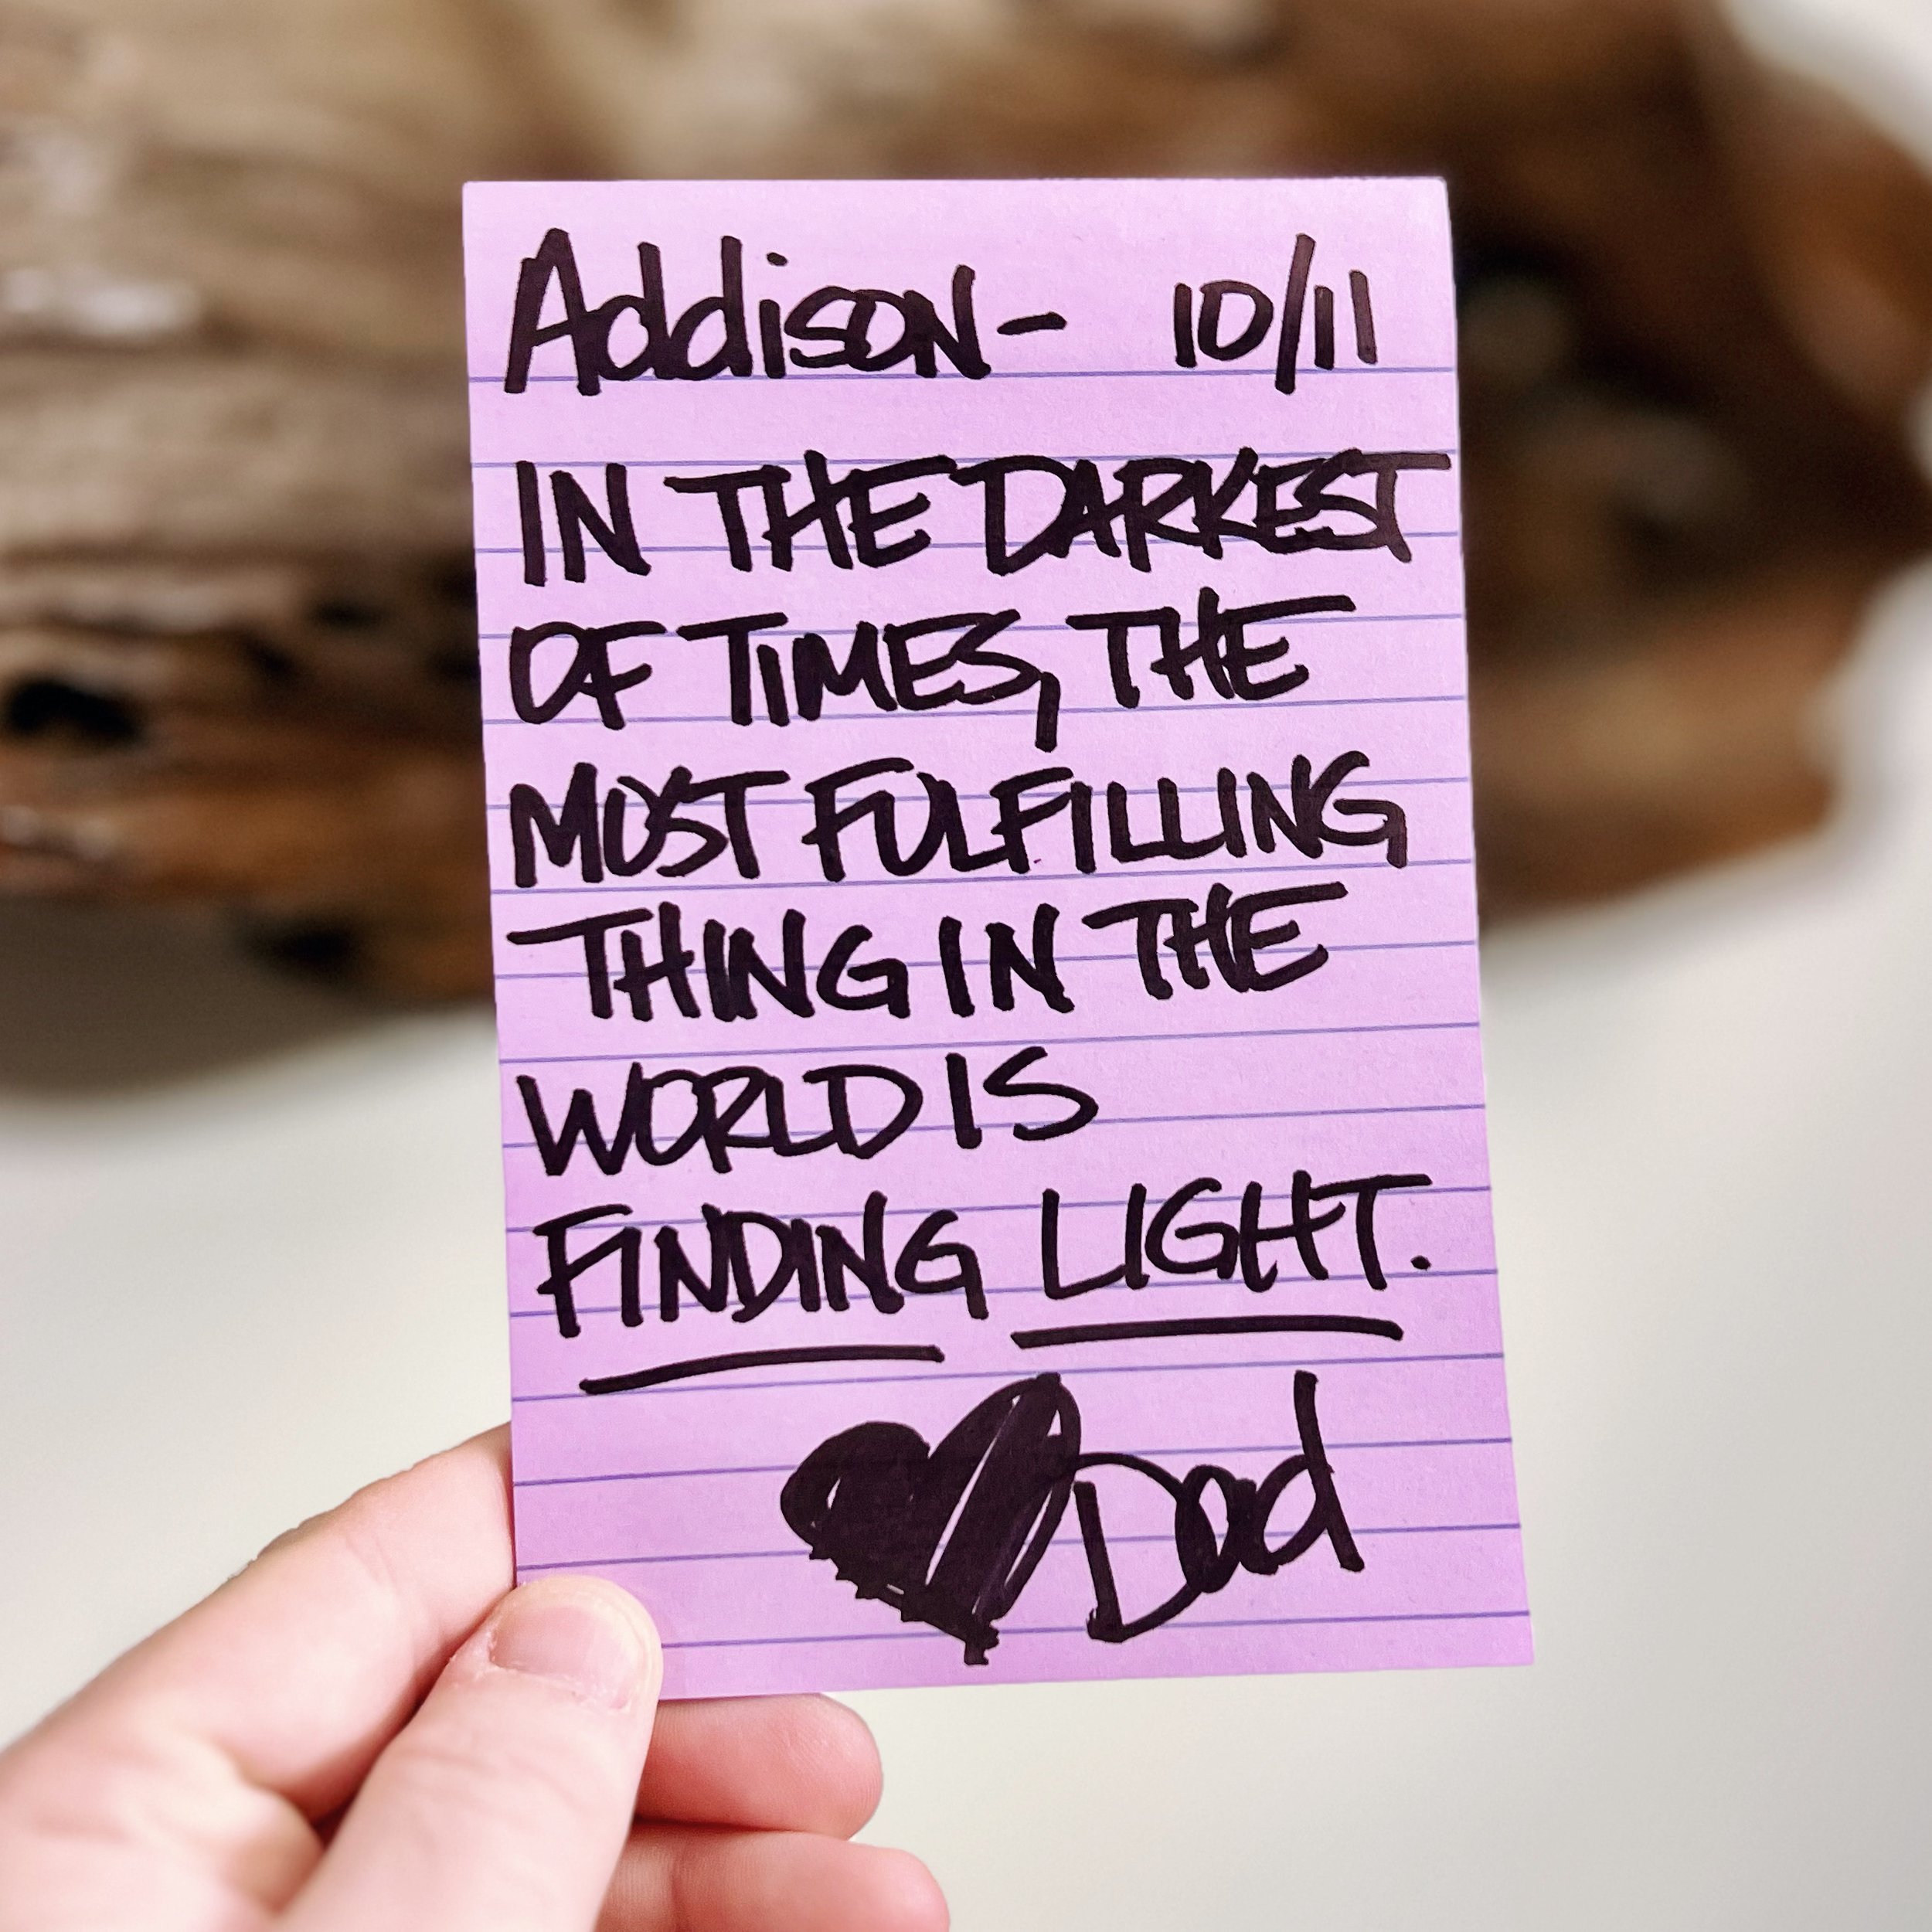 Addison- 10/11
IN THE DARKEST
OF TIMES, THE
MOST FULFILLING
THING IN THE
WORLD IS
FINDING LIGHT.
♥Dad